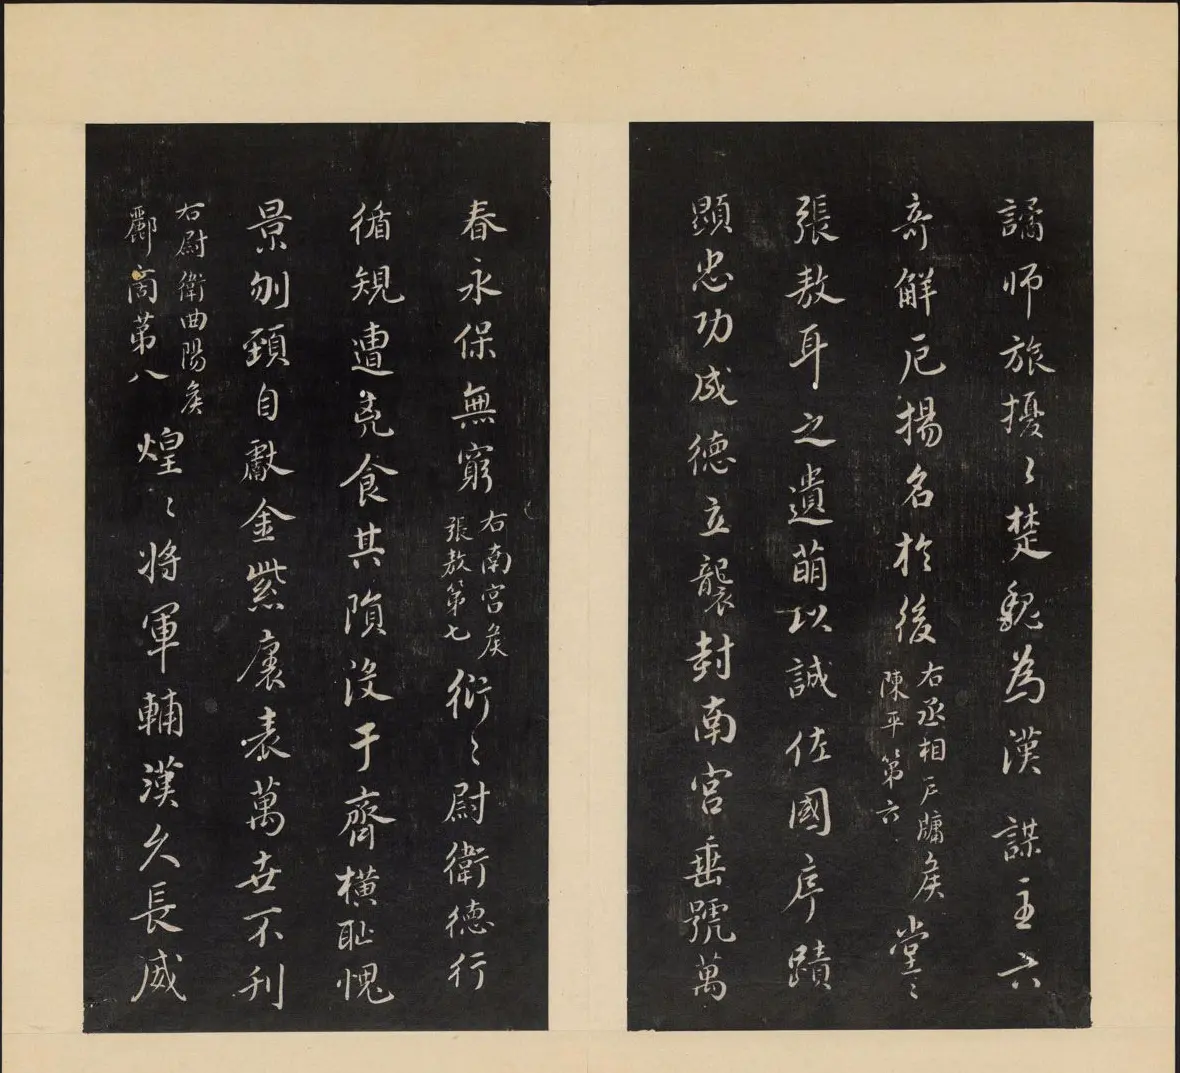 譎師旅擾〻楚魏為漢謀主六
奇解厄揚名於後右丞相戶牖矦陳平第六堂〻
張敖耳之遺萌以誠佐國序蹟
顯忠功成德立襲封南宮垂號萬
春永保無窮右南宮矦張敖第七衍〻尉衛德行
循規遭兇食其隕沒于齊橫恥愧
景刎頸自獻金紫褒表萬世不刊
右尉衛曲陽矦酈商第八煌〻將軍輔漢久長威